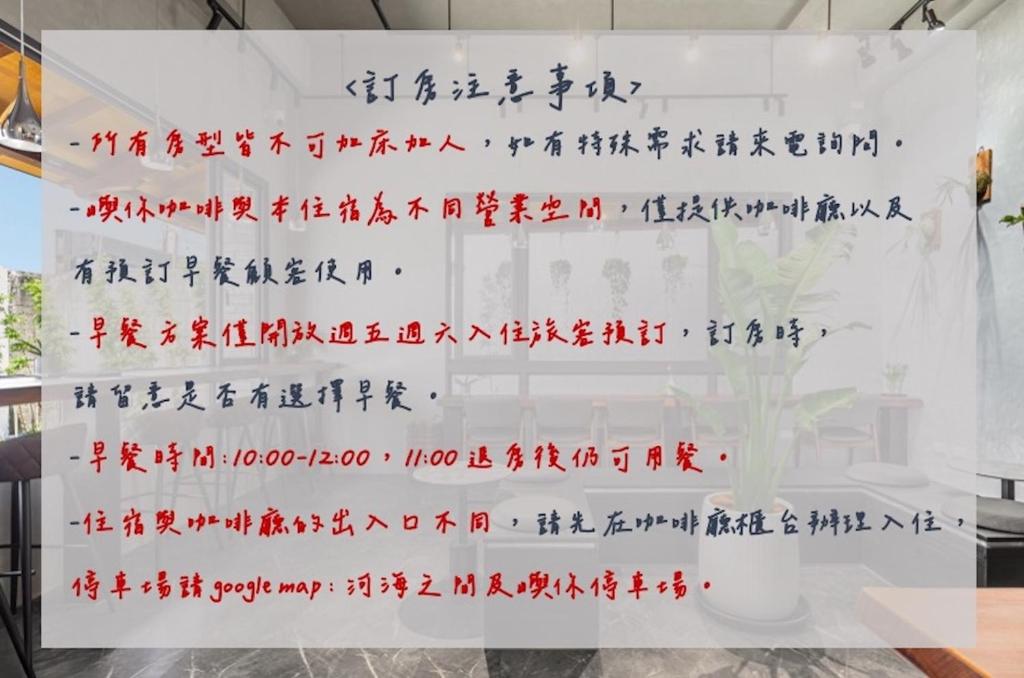 <訂房注意事項>
-所有房型皆不可加床加人，如有特殊需求請來電詢問。
-嶼你咖啡與本住宿為不同營業空間，僅提供咖啡廳以及
有預訂早餐顧客使用。
-早餐方案僅開放週五週六入住旅客預訂，訂房時，
請留意是否有選擇早餐。
-早餐時間:10:00-12:00，11:00 退房後仍可用餐。
-住宿與咖啡廳的出入口不同，請先在咖啡廳櫃台辦理入住，
停車場請google map: 河海之間及嶼你停車場。